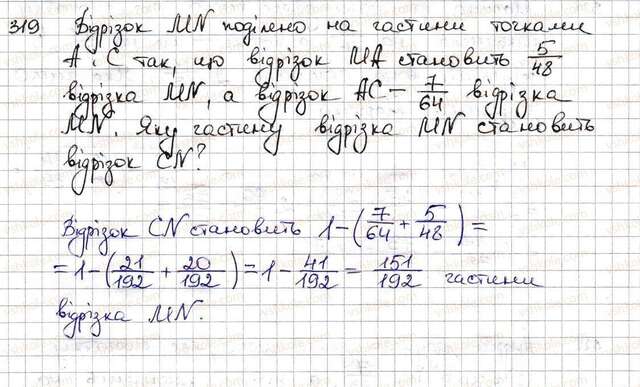 319. Відрізок MN поділено на частини точками
A і C так, що відрізок MA становить 5/48
відрізка MN, а відрізок AC – 7/64 відрізка
MN. Яку частину відрізка MN становить
відрізок CN?
Відрізок CN становить 1-(7/64+5/48)=
=1-(21/192+20/192)=1-41/192=151/192 частини
відрізка MN.